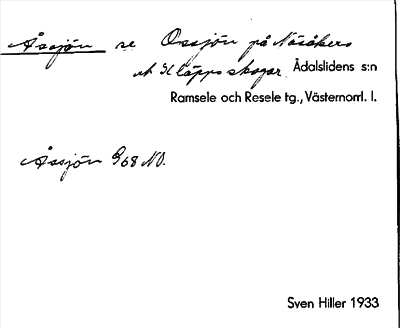 Åssjön se Ossjön på Näsåkers
o. Kläpps skogar. Ådalslidens s:n
Ramsele och Resele tg., Västernorrl. l.
Åssjön G68 NO.
Sven Hiller 1933